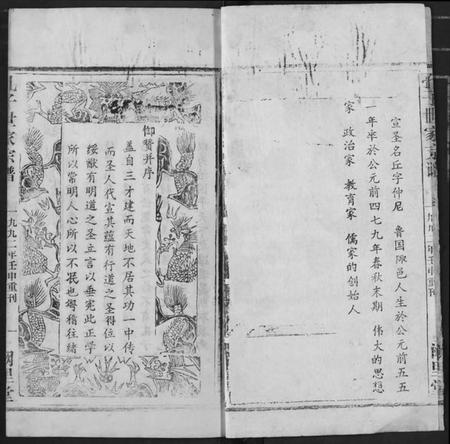 宣圣名丘字仲尼 鲁国陬邑人生於公元前五五
一年卒於公元前四七九年春秋末期 伟大的思想
家 政治家 教育家 儒家的创始人
御赞并序
盖自三才建而天地不居其功一中传
而圣人代宣其蕴有行道之圣得位以
绥猷有明道之圣立言以垂宪此正学
所以常明人心所以不泯也粤稽往绪
孔子世家宗谱
一九九二年壬申重刊
一